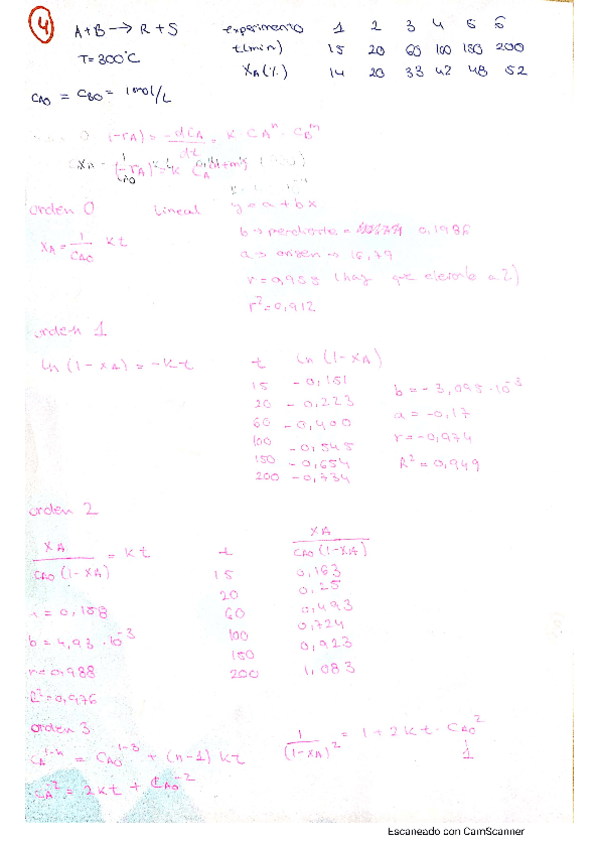 4
A+B → R+S experimento 1 2 3 4 5 6
T=300°C t(min) 15 20 60 100 150 200
XA(%) 14 20 33 42 48 52
CAO = CBO = 1mol/L
(-rA) = -dCA/dt = K · CA^n · CB^m
orden 0 Lineal y=a+bx
XA = 1/CAO kt
b → pendiente = 0,1986
a → origen → 15,79
r=0,955 (hay que elevarlo a 2)
r²=0,912
orden 1
ln(1-XA) = -kt t ln(1-XA)
15 -0,151
20 -0,223
60 -0,400
100 -0,545
150 -0,654
200 -0,734
b = -3,095·10^-3
a = -0,17
r = -0,974
R² = 0,949
orden 2
XA/(CAO(1-XA)) = kt t XA/(CAO(1-XA))
15 0,163
20 0,25
60 0,493
100 0,724
150 0,923
200 1,083
= 0,158
b = 4,93·10^-3
r=0,988
R²=0,976
orden 3
CA^1-n = CAO^1-3 + (n-1) kt
CA^-2 = 2kt + CAO^-2
1/(1-XA)² = 1+2kt·CAO²
1
Escaneado con CamScanner